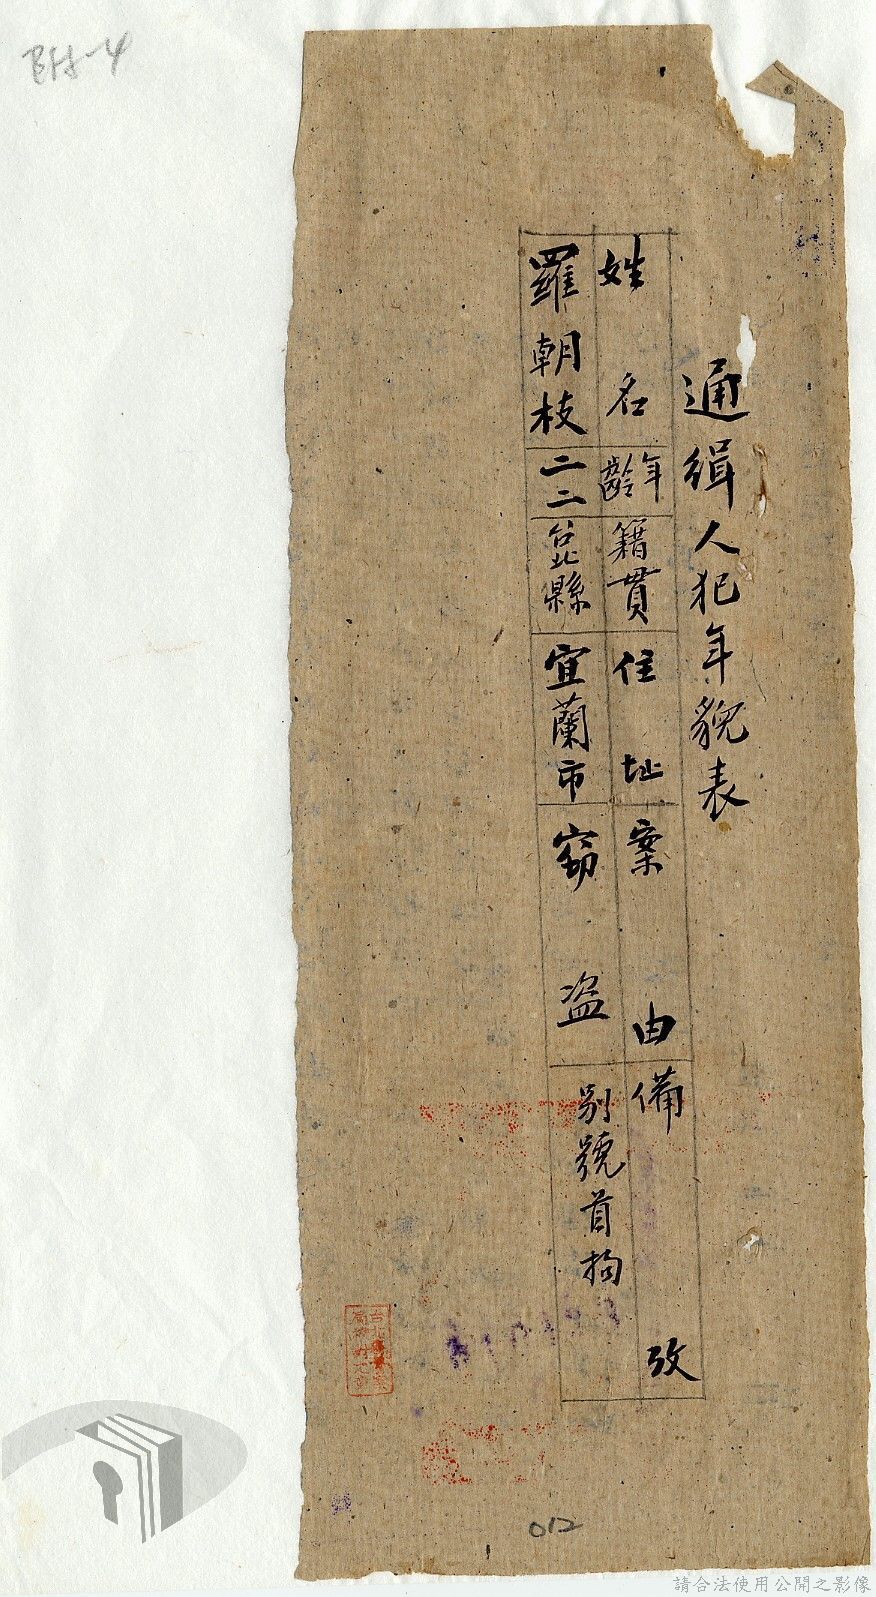 通緝人犯年貌表
姓名 年齡 籍貫 住址 案由 備攷
羅朝枝 二二 台北縣 宜蘭市 竊盜 別號首枸
附-4
012
請合法使用公開之影像